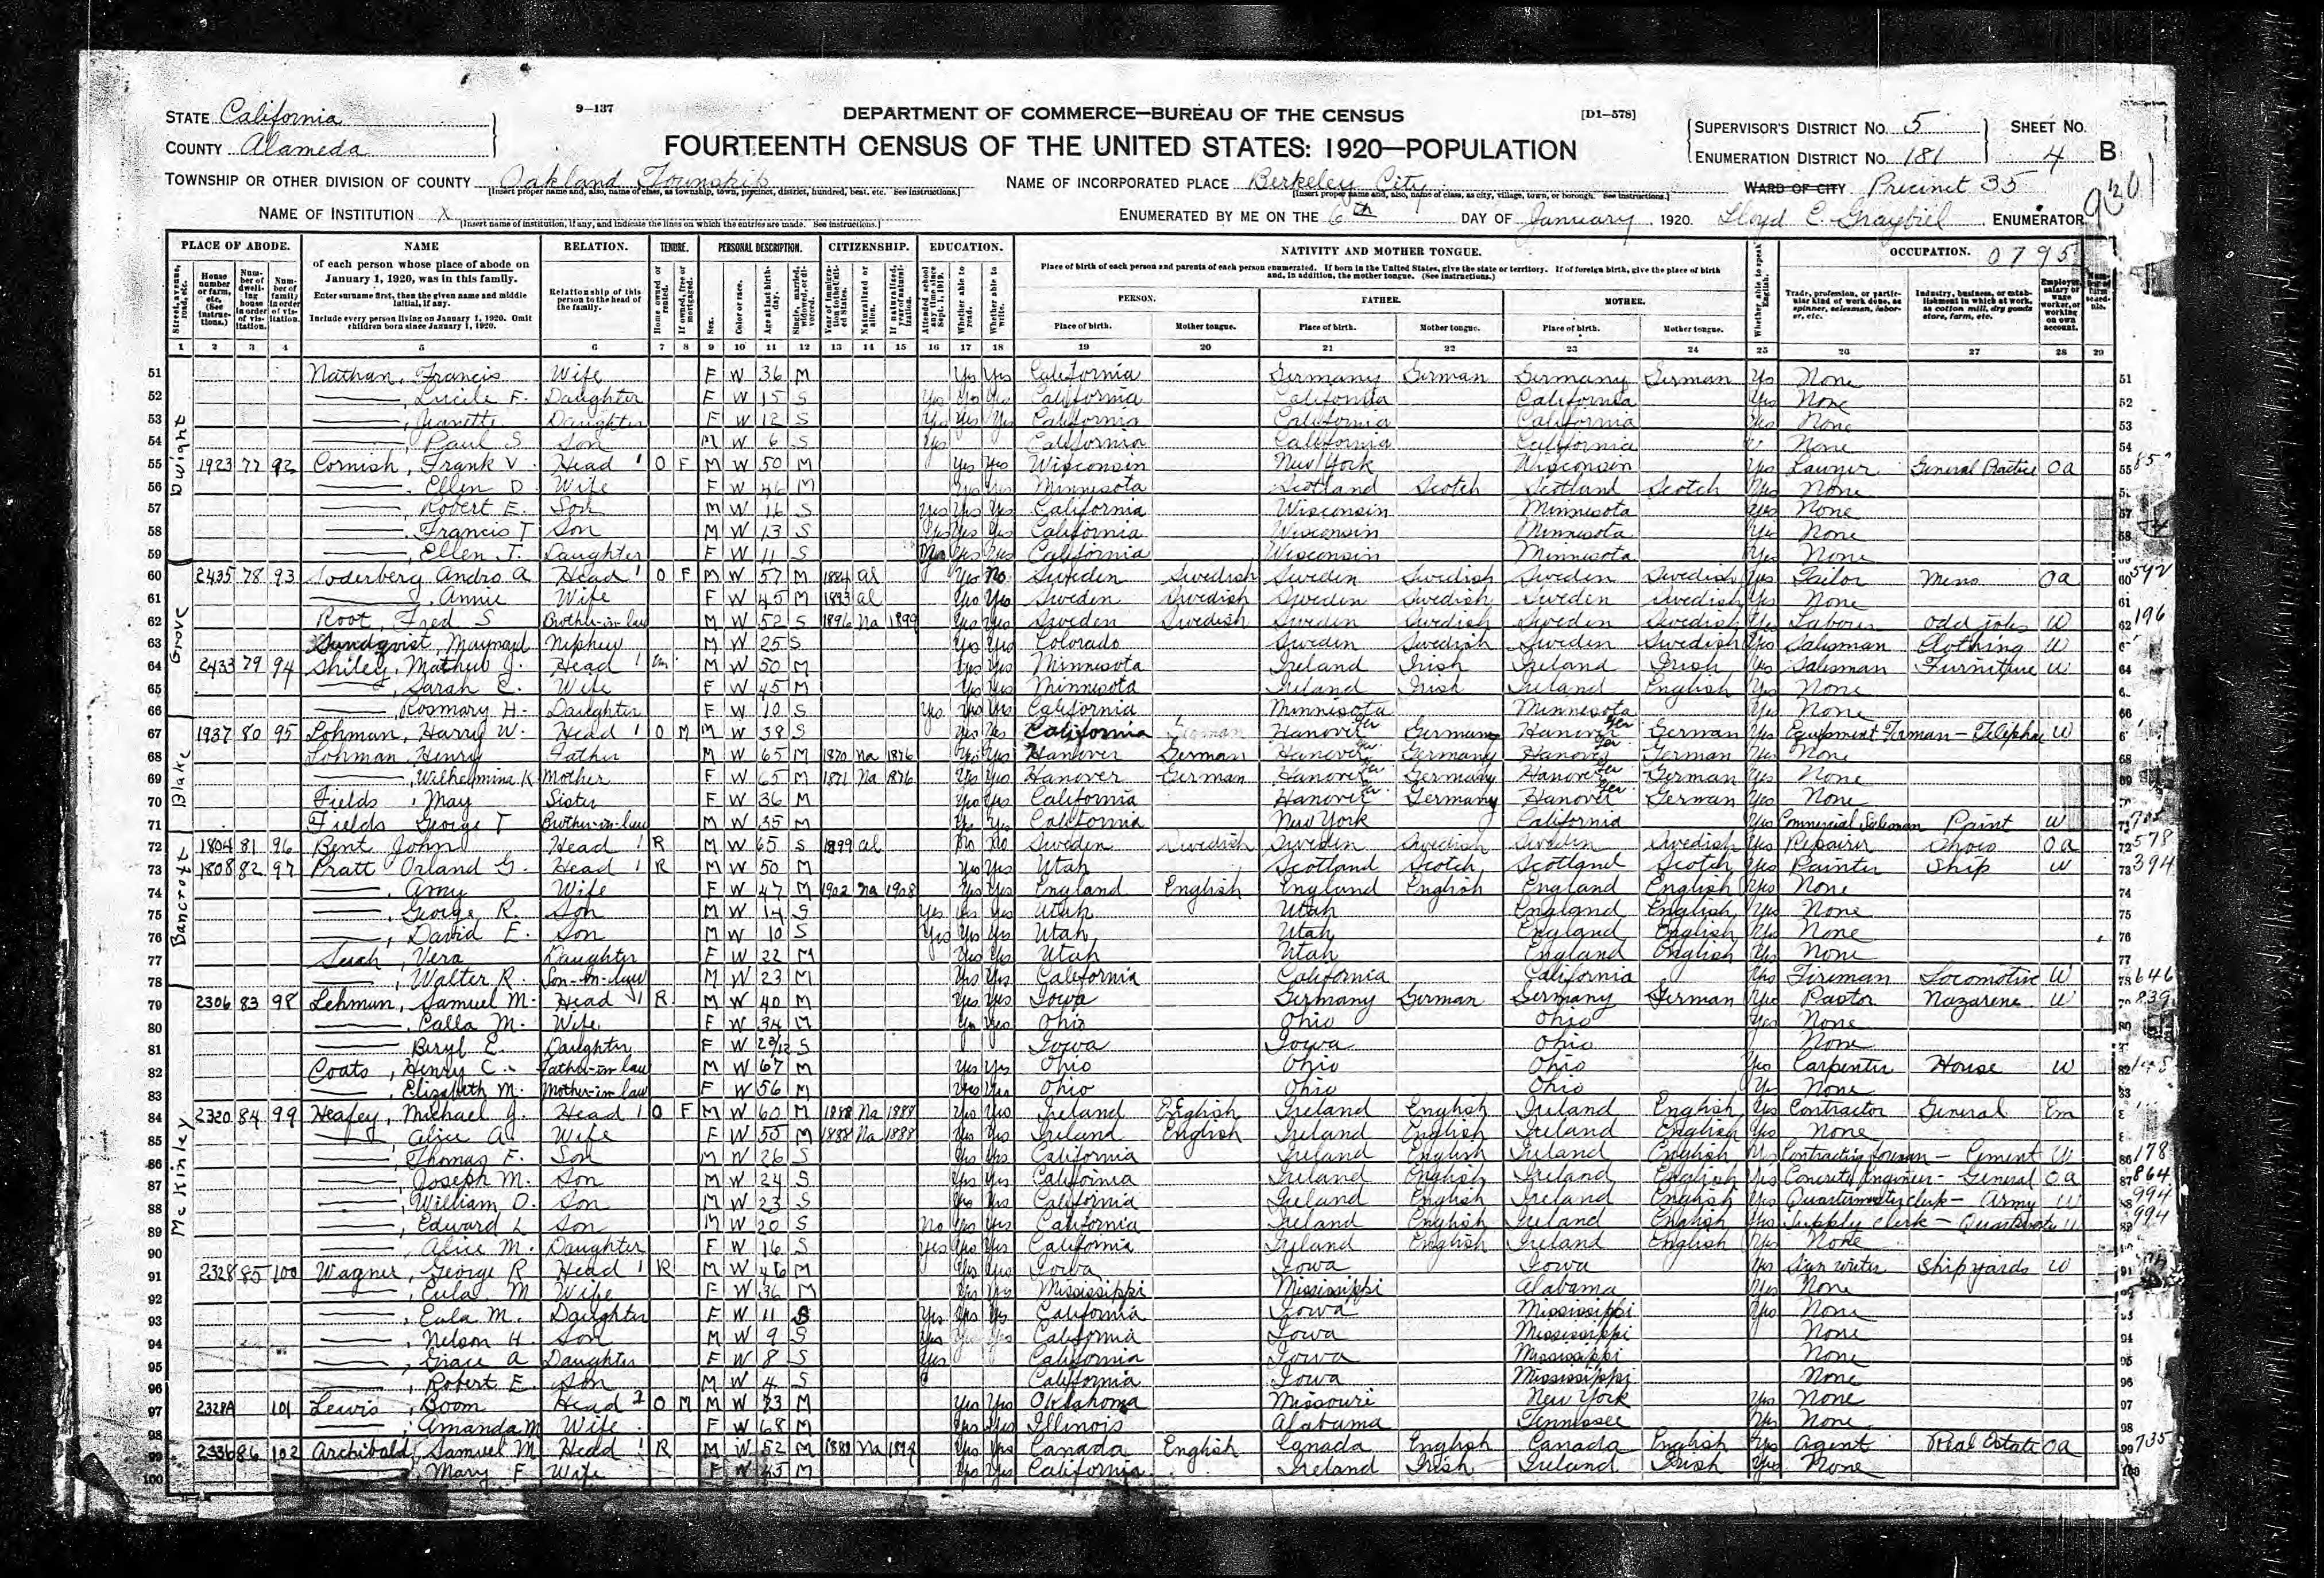 9—137
DEPARTMENT OF COMMERCE—BUREAU OF THE CENSUS
[D1—578]
STATE California
COUNTY Alameda
FOURTEENTH CENSUS OF THE UNITED STATES: 1920—POPULATION
SUPERVISOR'S DISTRICT No. 5
ENUMERATION DISTRICT No. 181
SHEET No. 4 B
TOWNSHIP OR OTHER DIVISION OF COUNTY Oakland Township
[Insert proper name and, also, name of class, as township, town, precinct, district, hundred, beat, etc. See instructions.]
NAME OF INCORPORATED PLACE Berkeley City
[Insert proper name and, also, name of class, as city, village, town, or borough. See instructions.]
WARD OF CITY Precinct 35
NAME OF INSTITUTION X
[Insert name of institution, if any, and indicate the lines on which the entries are made. See instructions.]
ENUMERATED BY ME ON THE 6th DAY OF January, 1920. Lloyd C. Graybiel ENUMERATOR
PLACE OF ABODE. NAME RELATION. TENURE. PERSONAL DESCRIPTION. CITIZENSHIP. EDUCATION. NATIVITY AND MOTHER TONGUE. OCCUPATION. 0795
of each person whose place of abode on January 1, 1920, was in this family.
Enter surname first, then the given name and middle initial, if any.
Include every person living on January 1, 1920. Omit children born since January 1, 1920.
Relationship of this person to the head of the family.
Place of birth of each person and parents of each person enumerated. If born in the United States, give the state or territory. If of foreign birth, give the place of birth and, in addition, the mother tongue. (See instructions.)
PERSON. FATHER. MOTHER.
Place of birth. Mother tongue. Place of birth. Mother tongue. Place of birth. Mother tongue.
1 2 3 4 5 6 7 8 9 10 11 12 13 14 15 16 17 18 19 20 21 22 23 24 25 26 27 28 29
51 Nathan, Francis Wife F W 36 M Yes Yes California Germany German Germany German Yes None 51
52 , Lucile F. Daughter F W 15 S Yes Yes Yes California California California Yes None 52
53 , Jeanette Daughter F W 12 S Yes Yes Yes California California California Yes None 53
54 , Paul S Son M W 6 S Yes California California California None 54
Dwight
55 1923 77 92 Cornish, Frank V. Head 1 O F M W 50 M Yes Yes Wisconsin New York Wisconsin Yes Lawyer General Practice Oa 55
56 , Ellen D. Wife F W 46 M Yes Yes Minnesota Scotland Scotch Scotland Scotch Yes None
57 , Robert E. Son M W 16 S Yes Yes Yes California Wisconsin Minnesota Yes None 57
58 , Francis T Son M W 13 S Yes Yes Yes California Wisconsin Minnesota Yes None 58
59 , Ellen J. Daughter F W 11 S No Yes Yes California Wisconsin Minnesota Yes None
Grove
60 2435 78 93 Soderberg Andro A Head 1 O F M W 57 M 1884 al Yes No Sweden Swedish Sweden Swedish Sweden Swedish Yes Tailor Mens Oa 60 592
61 , Annie Wife F W 45 M 1893 al Yes Yes Sweden Swedish Sweden Swedish Sweden Swedish Yes None 61
62 Root, Fred S Brother-in-law M W 52 S 1896 Na 1899 Yes Yes Sweden Swedish Sweden Swedish Sweden Swedish Yes Laborer odd jobs W 62 196
63 Sundqvist, Maynard Nephew M W 25 S Yes Yes Colorado Sweden Swedish Sweden Swedish Yes Salesman Clothing W
64 2433 79 94 Shiley, Mathew J. Head 1 M W 50 M Yes Yes Minnesota Ireland Irish Ireland Irish Yes Salesman Furniture W 64
65 , Sarah C. Wife F W 45 M Yes Yes Minnesota Ireland Irish Ireland English Yes None
66 , Rosmary H. Daughter F W 10 S Yes Yes Yes California Minnesota Minnesota Yes None 66
Blake
67 1937 80 95 Lohman, Harry W. Head 1 O M M W 38 S Yes Yes California Hanover Ger German Hanover Ger German Yes Equipment Firman – Telephone W
68 Lohman, Henry Father M W 65 M 1870 Na 1876 Yes Yes Hanover German Hanover Ger Germany Hanover Ger German Yes None 68
69 , Wilhelmina K Mother F W 65 M 1871 Na 1876 Yes Yes Hanover German Hanover Ger Germany Hanover Ger German Yes None 69
70 Fields, May Sister F W 36 M Yes Yes California Hanover Ger Germany Hanover Ger German Yes None
71 Fields George T Brother-in-law M W 35 M Yes Yes California New York California Yes Commercial Salesman Paint W
Bancroft
72 1804 81 96 Bent John Head 1 R M W 65 S 1899 al No No Sweden Swedish Sweden Swedish Sweden Swedish Yes Repairer Shoes Oa 72 578
73 1808 82 97 Pratt Orland G. Head 1 R M W 50 M Yes Yes Utah Scotland Scotch Scotland Scotch Yes Painter Ship W 73 394
74 , Amy Wife F W 47 M 1902 Na 1908 Yes Yes England English England English England English Yes None 74
75 , George R. Son M W 14 S Yes Yes Yes Utah Utah England English Yes None 75
76 , David E. Son M W 10 S Yes Yes Yes Utah Utah England English Yes None 76
77 Such, Vera Daughter F W 22 M Yes Yes Utah Utah England English Yes None 77
78 , Walter R. Son-in-law M W 23 M Yes Yes California California California Yes Fireman Locomotive W 78 646
McKinley
79 2306 83 98 Lehman, Samuel M. Head 1 R M W 40 M Yes Yes Iowa Germany German Germany German Yes Pastor Nazarene W 839
80 , Calla M. Wife F W 34 M Yes Yes Ohio Ohio Ohio Yes None 80
81 , Beryl E. Daughter F W 2 3/12 S Iowa Iowa Ohio None
82 Coats, Henry C. Father-in law M W 67 M Yes Yes Ohio Ohio Ohio Yes Carpenter House W 82
83 , Elizabeth M. Mother-in law F W 56 M Yes Yes Ohio Ohio Ohio Yes None 83
84 2320 84 99 Heafey, Michael J. Head 1 O F M W 60 M 1888 Na 1888 Yes Yes Ireland English Ireland English Ireland English Yes Contractor General Em
85 , Alice A. Wife F W 55 M 1888 Na 1888 Yes Yes Ireland English Ireland English Ireland English Yes None
86 , Thomas F. Son M W 26 S Yes Yes California Ireland English Ireland English Yes Contracting Forman – Cement W 86 178
87 , Joseph M. Son M W 24 S Yes Yes California Ireland English Ireland English Yes Concrete Engineer – General Oa 87 864
88 , William O. Son M W 23 S Yes Yes California Ireland English Ireland English Yes Quartermaster clerk – Army W 994
89 , Edward L Son M W 20 S No Yes Yes California Ireland English Ireland English Yes Supply Clerk – 994
90 , Alice M. Daughter F W 16 S Yes Yes Yes California Ireland English Ireland English Yes None
91 2328 85 100 Wagner, George R Head 1 R M W 46 M Yes Yes Iowa Iowa Iowa Yes Sign writer Shipyards W 91
92 , Eula M Wife F W 36 M Yes Yes Mississippi Mississippi Alabama Yes None
93 , Eula M. Daughter F W 11 S Yes Yes Yes California Iowa Mississippi Yes None 93
94 , Nelson H. Son M W 9 S Yes Yes Yes California Iowa Mississippi None 94
95 , Grace A Daughter F W 8 S Yes California Iowa Mississippi None 95
96 , Robert E. Son M W 4 S California Iowa Mississippi None 96
97 2328A 101 Lewis, Boom Head 2 O M M W 73 M Yes Yes Oklahoma Missouri New York Yes None 97
98 , Amanda M Wife F W 68 M Yes Yes Illinois Alabama Tennessee Yes None 98
99 2336 86 102 Archibald, Samuel M Head 1 R M W 52 M 1888 Na Yes Yes Canada English Canada English Canada English Yes Agent Real Estate Oa 99 735
100 , Mary F Wife F W 45 M Yes Yes California Ireland Irish Ireland Irish Yes None 100